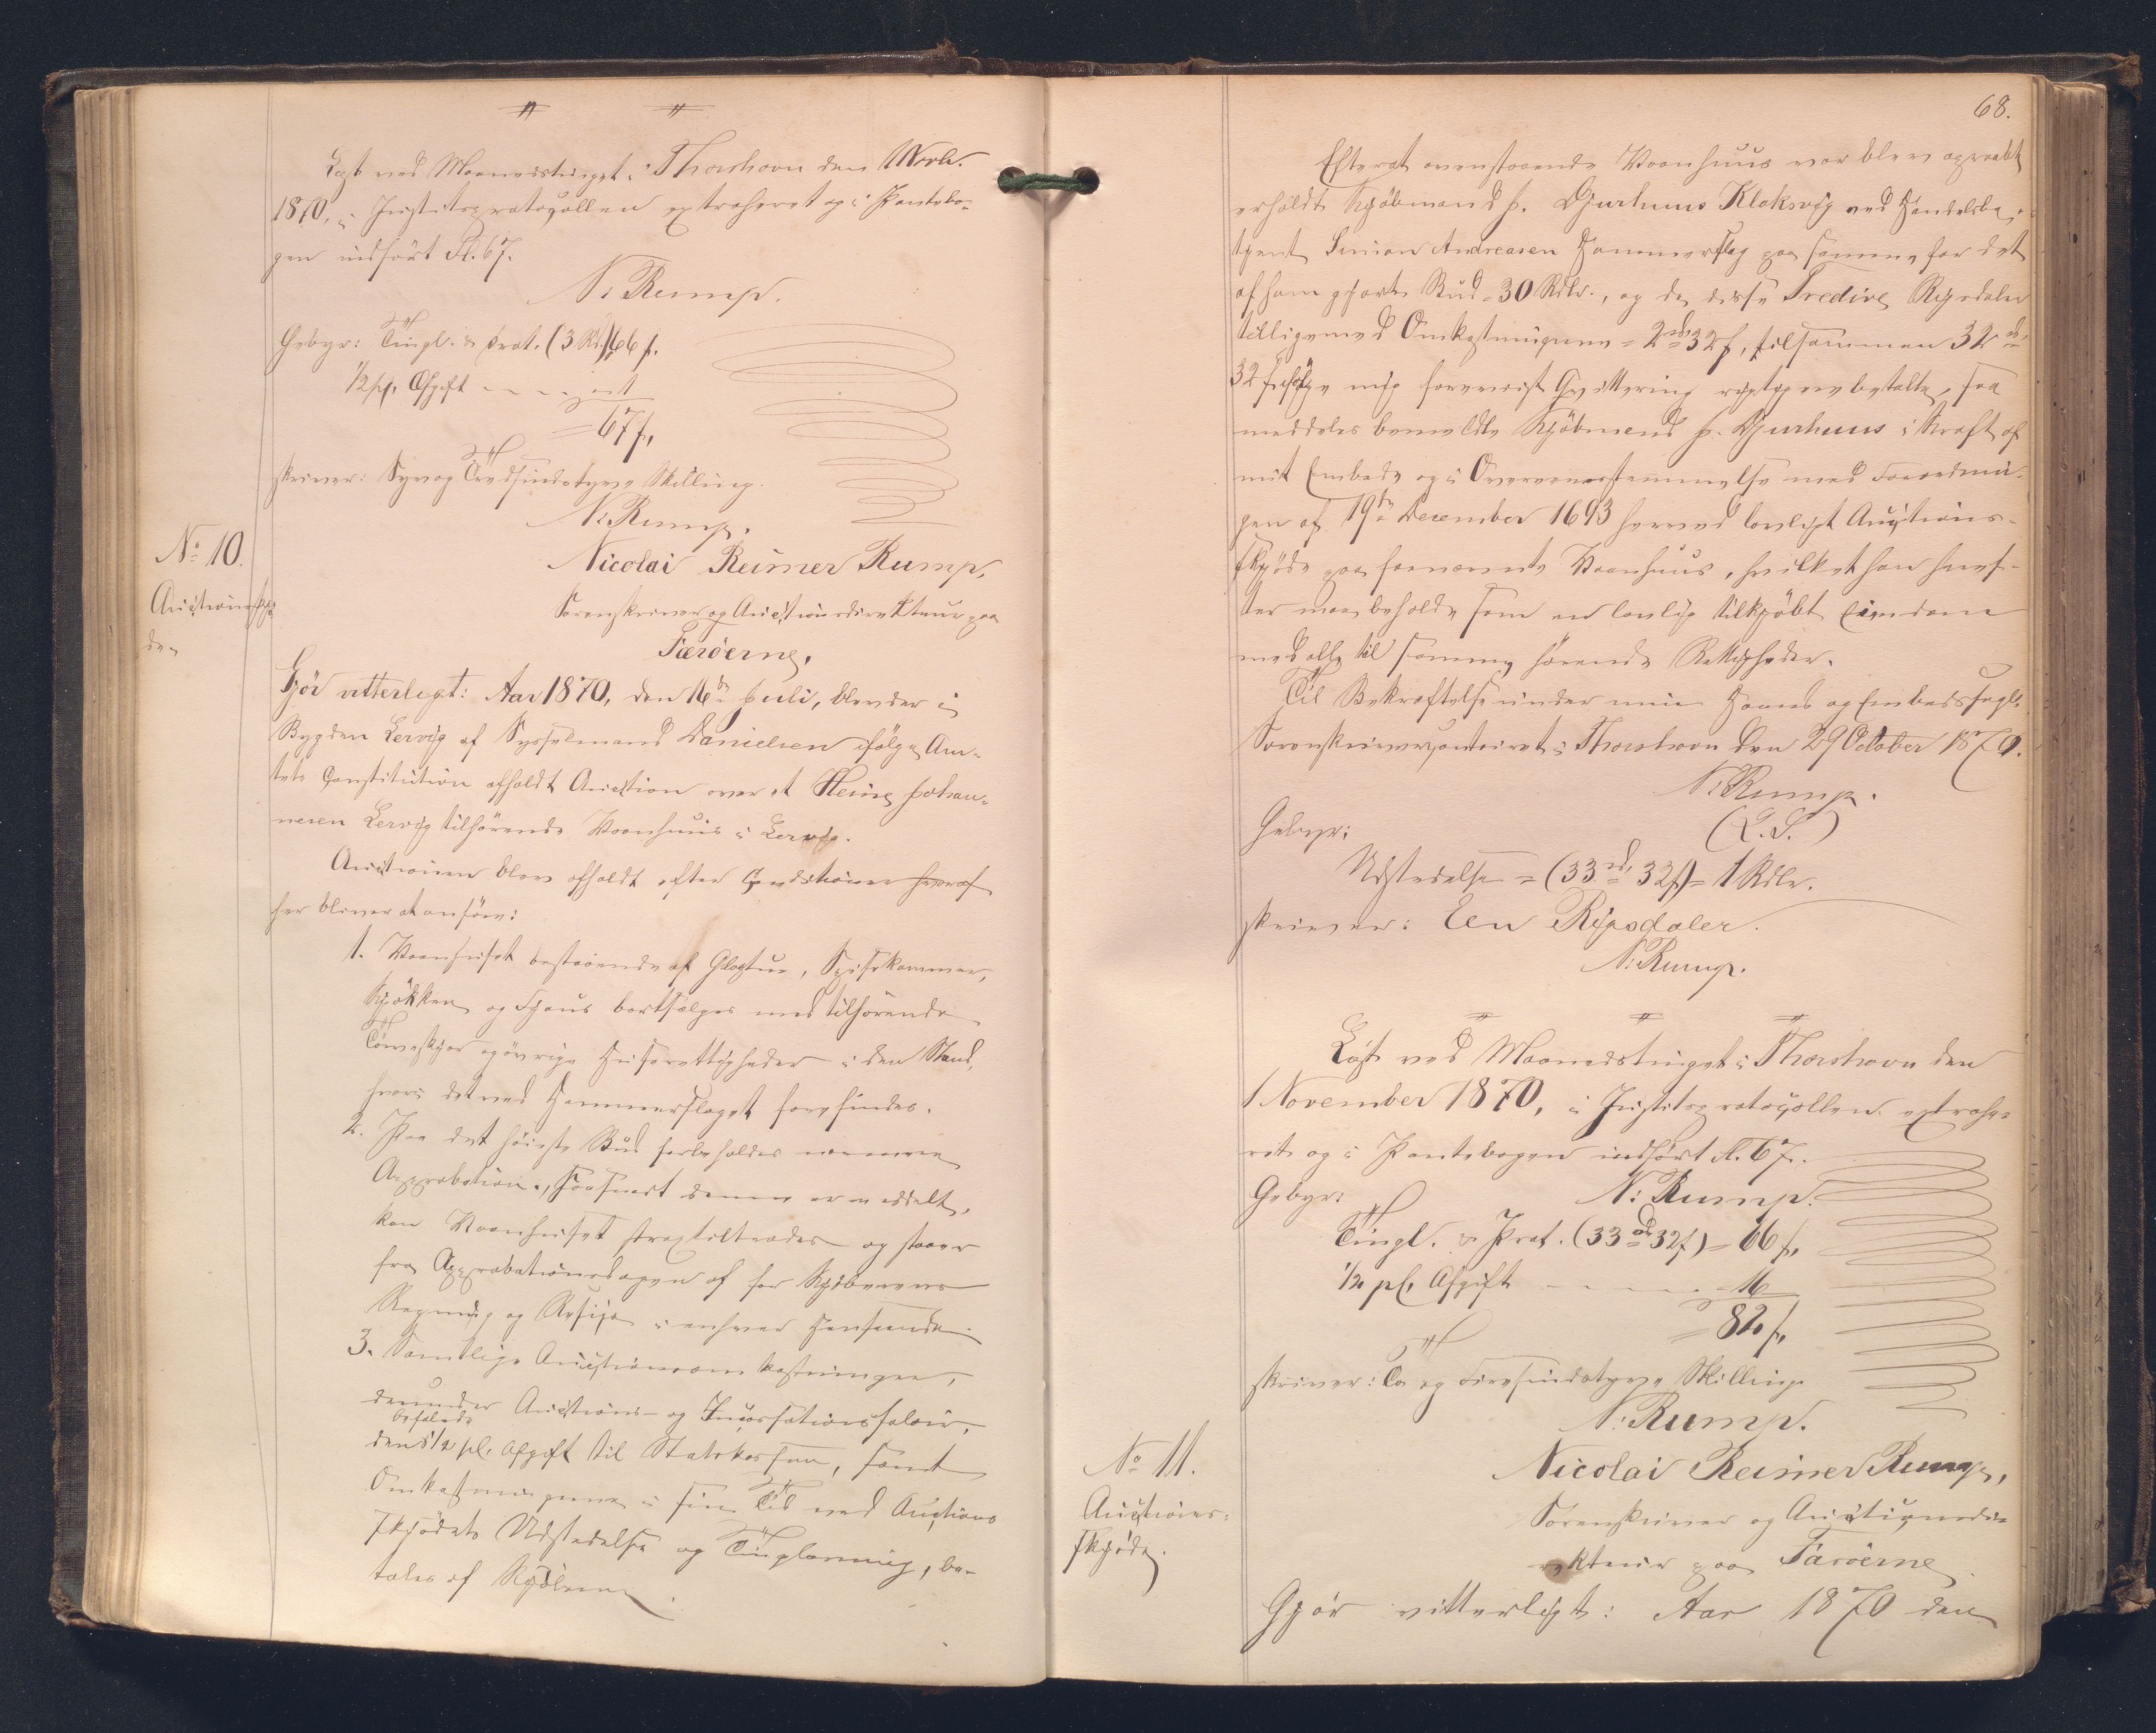 Læst ved Maanedstinget i Thorshavn den 1 Novbr.
1870, i Justitsprotocollen extraheret og i Pantebo-
gen indført fl. 67.
N. Rump.
Gebyr: Tingl. & Prot. (3 Rd.) 66 s.
1/2 pC. Afgift - - - 1
= 67 s.
skriver: Syv og Tredsindstyve Skilling.
N. Rump.
No 10.
Auctionsskjø-
de
Nicolai Reimer Rump,
Sorenskriver og Auctionsdirekteur paa
Færøerne,
Gjør vitterligt: Aar 1870, den 16de Juli, blev der i
Bygden Lervig af Sysselmand Danielsen ifølge Am-
tets Constitution afholdt Auction over et Heine Johan-
nesen Lervig tilhørende Vaanhuus i Lervig.
Auctionen blev afholdt efter Conditioner hvoraf
her bliver at anføre:
1. Vaanhuset bestaaende af Glastue, Spisekammer,
Kjøkken og Hjaus bortsælges med tilhørende
og øvrige Huserettigheder i den Stand,
hvori det ved Hammerslaget forefindes.
2. Paa det høieste Bud forbeholdes nærmere
Approbation, saasnart denne er meddelt,
kan Vaanhuset strax tiltrædes og staaer
fra Approbationsdagen af for Kjøberens
Regning og Risico i enhver Henseende.
3. Samtlige Auctionsomkostninger,
derunder Auctions- og Incassationssalair,
befalede
den 1/2 pC. Afgift til Statskassen, samt
Omkostningerne i sin Tid ved Auctions
skjødets Udstedelse og Tinglæsning, be-
tales af Kjøberen.
68.
Efterat ovenstaaende Vaanhuus var blev opraabt
erholdt Kjøbmand J. Djurhuus Klaksvig ved Handelsbe-
tjent Simion Andreasen Hammerslag paa samme for det
af ham gjorte Bud = 30 Rdlr., og da disse Tredive Rigsdaler
tilligemed Omkostningerne = 2 rd 32 s, tilsammen 32 rd
32 s ifølge mig foreviist Qvittering rigtigen betalte, saa
meddeles bemeldte Kjøbmand J. Djurhuus i Kraft af
mit Embede og i Overeensstemmelse med Forordnin-
gen af 19de December 1693 herved lovligt Auctions-
skjøde paa fornævnte Vaanhuus, hvilket han heref-
ter maa beholde som en lovlig tilkjøbt Eiendom
med alle til samme hørende Rettigheder.
Til Bekræftelse under min Haand og Embedssegl.
Sorenskrivercontoiret i Thorshavn den 29 October 1870.
N. Rump.
(L. S.)
Gebyr:
Udstedelse = (33 rd 32 s) = 1 Rdlr.
skriver: Een Rigsdaler.
N. Rump.
Læst ved Maanedstinget i Thorshavn den
1 November 1870, i Justitsprotocollen extrahe-
ret og i Pantebogen indført fl. 67.
N. Rump.
Gebyr:
Tingl. & Prot. (33 rd 32 s) = 66 s.
1/2 pC. Afgift - - - 16
= 82 s.
skriver: To og Firesindstyve Skilling
N. Rump.
No 11.
Auctions-
skjøde.
Nicolai Reimer Rump,
Sorenskriver og Auctionsdi-
rekteur paa Færøerne
Gjør vitterligt: Aar 1870 den